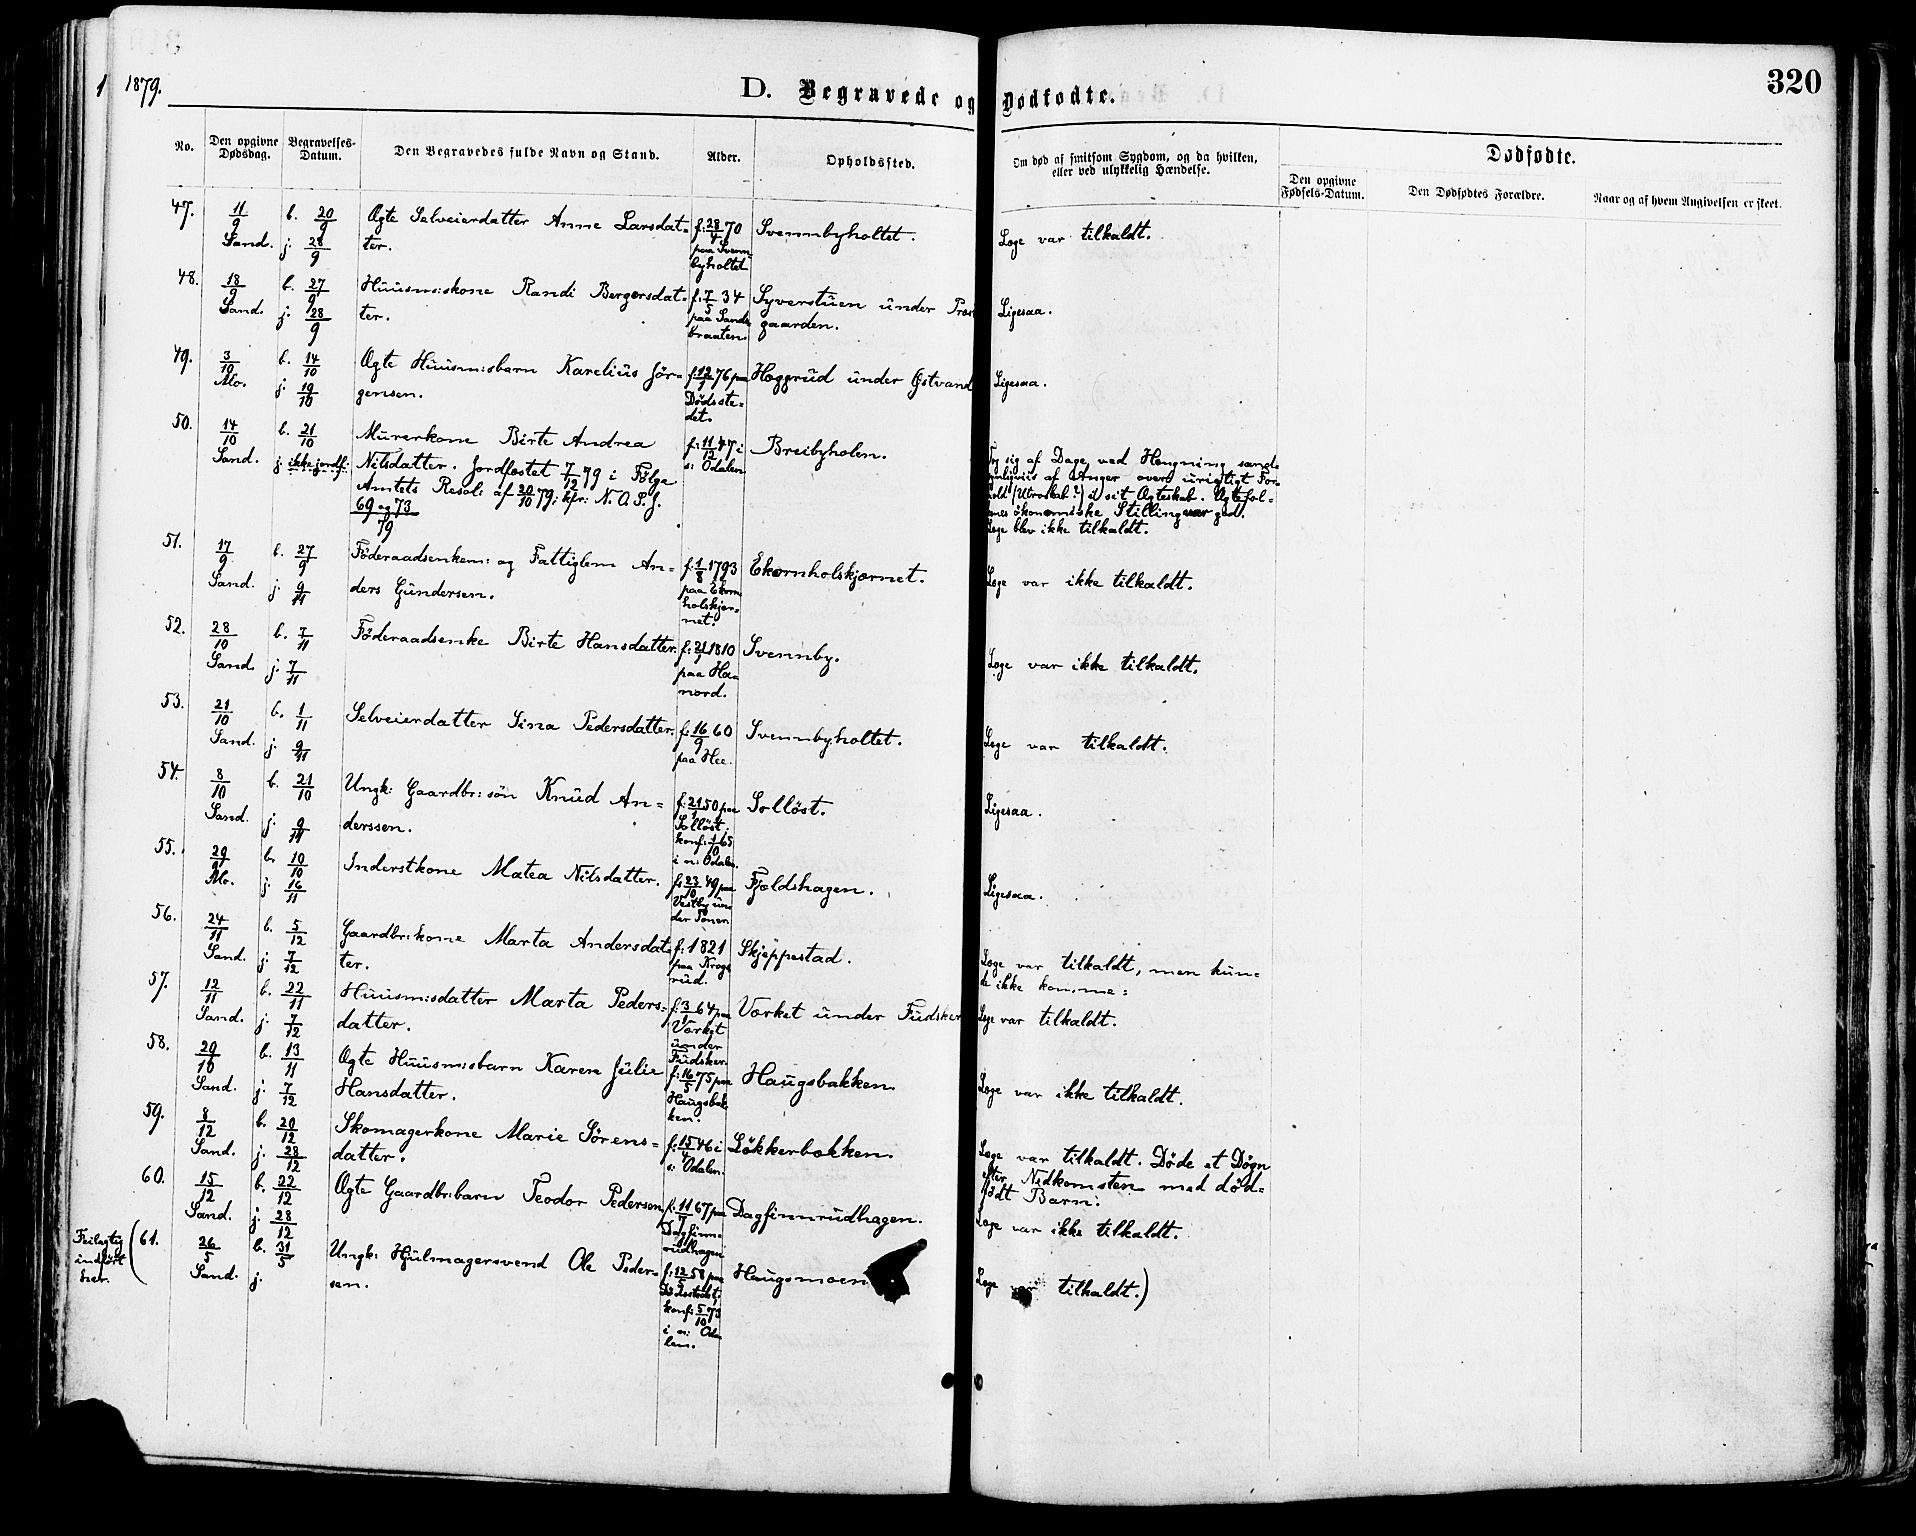 1 1879.
D. Begravede og Dødfødte.
320
No. Den opgivne Dødsdag. Begravelses-Datum. Den Begravedes fulde Navn og Stand. Alder. Opholdssted. Om død af smitsom Sygdom, og da hvilken, eller ved ulykkelig Hændelse. Dødfødte.
Den opgivne Fødsels-Datum. Den Dødfødtes Forældre. Naar og af hvem Angivelsen er skeet.
47. 11/9 b. 20/9 Ægte Selveierdatter Anne Larsdat= f: 28/4 70 Svennbyholtet. Læge var tilkaldt.
Sand. j. 28/9 ter. paa Svenn
byholtet
48. 18/9 b. 27/9 Huusm:skone Randi Bergersdat= f: 7/5 34 Syverstuen under
Sand. j. 28/9 ter. paa Sands gaarden. Ligesaa.
braaten.
49. 3/10 b. 14/10 Ægte Huusm:sbarn Karelius Jör= f: 12/9 76 paa Høggrud under Østvand Ligesaa.
Mo. j. 19/10 gensen. Dødsste=
det.
50. 14/10 b. 21/10 Murerkone Birte Andrea f: 11/12 47 i Breibyholen.
Sand. j. ikke jordf. Nilsdatter. Jordfæstet 7/12 79 i Følge s: Odalen
Amtets Resol: af 20/10 79; kfr: N. A. P. J.
69 og 73
79
Tog sig af Dage ved Hængning sand=
synligviis af Anger over urigtigt For=
hold (Utroskab?) i sit Ægteskab. Ægtefol=
enes økonomiske Stilling var god.
Læge blev ikke tilkaldt.
51. 17/9 b. 27/9 Föderaadsenkem: og Fattiglem An= f: 1/8 1793 Ekornholskjærnet.
Sand. j. 9/11 ders Gundersen. paa Ekorn Læge var ikke tilkaldt.
holskjær=
net.
52. 28/10 b. 7/11 Föderaadsenke Birte Hansdatter. f: 21/1 1810 Svennby.
Sand. j. 7/11 paa Ha= Læge var ikke tilkaldt.
nord.
53. 21/10 b. 1/11 Selveierdatter Sina Pedersdatter. f: 16/9 60 Svennbyholtet.
Sand. j. 9/11 paa Hee. Læge var tilkaldt.
54. 8/10 b. 21/10 Ungk: Gaardbr:sön Knud An= f: 21/1 50 paa Solløst.
Sand. j. 9/11 derssen. Solløst; Ligesaa.
konf: 1/10 65
i n: Odalen.
55. 29/9 b. 10/10 Inderstkone Matea Nilsdatter. f: 23/10 49 paa Fjeldshagen.
Mo. j. 16/11 Vestby un Ligesaa.
der Toner
56. 24/11 b. 5/12 Gaardbr:kone Marta Andersdat= f: 1821 Skjeppestad.
Sand. j. 7/12 ter. paa Krogs
rud. Læge var tilkaldt, men kun=
de ikke komme:
57. 12/11 b. 22/11 Huusm:sdatter Marta Peders= f: 3/1 64 paa Vorket under Fudsker
Sand. j. 7/12 datter. Vorket Læge var tilkaldt.
under
Fudsker.
58. 20/10 b. 13/11 Ægte Huusm:sbarn Karen Julie f: 16/5 75 paa Haugsbakken.
Sand. j. 7/12 Hansdatter. Haugsbak Læge var ikke tilkaldt.
ken.
59. 8/12 b. 20/12 Skomagerkone Marie Sörens= f: 15/4 46 i Løkkerbakken.
Sand. j. 28/12 datter. s: Odalen.
Læge var tilkaldt. Døde et Døgn
efter Nedkomsten med död=
födt Barn.
60. 15/12 b. 22/12 Ægte Gaardbr:barn Teodor Pedersen f: 11/7 67 paa Dagfinnrudhagen.
Sand. j. 28/12 Dagfinn= Læge var ikke tilkaldt.
rudhagen
Feilagtig (61. 26/5 b. 31/5 Ungk: Hjulmagersvend Ole Peder= f: 12/5 58 paa Haugsmoen
indført Sand. j. sen. konf: 5/10 73 Læge var tilkaldt.)
her. i n: Oda
len.